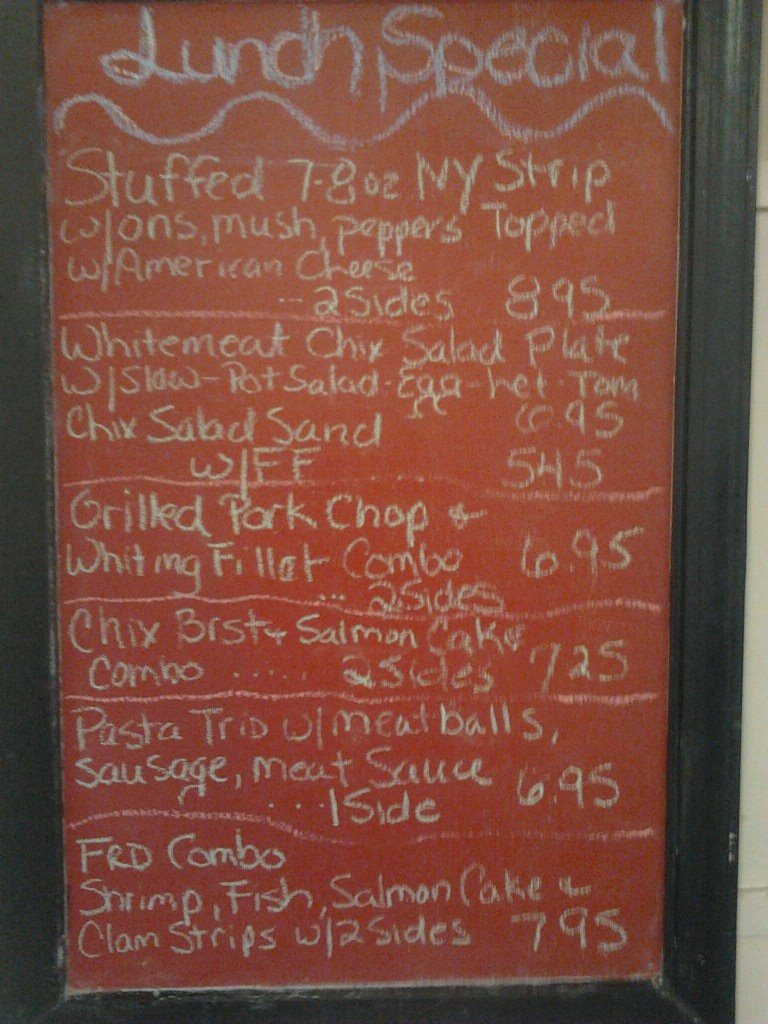 Lunch Special
Stuffed 7-8oz NY Strip
w/ons, mush, peppers Topped
w/American Cheese
-- 2 Sides 8 95
Whitemeat Chix Salad Plate
w/Slaw-Pot Salad-Egg-Let-Tom
6.95
Chix Salad Sand
w/FF 545
Grilled Pork Chop &
Whiting Fillet Combo 6.95
... 2 Sides
Chix Brst & Salmon Cake
Combo ..... 2 Sides 725
Pasta Trio w/meatballs,
sausage, meat Sauce 6.95
.... 1 Side
FRD Combo
Shrimp, Fish, Salmon Cake &
Clam Strips w/2 Sides 795